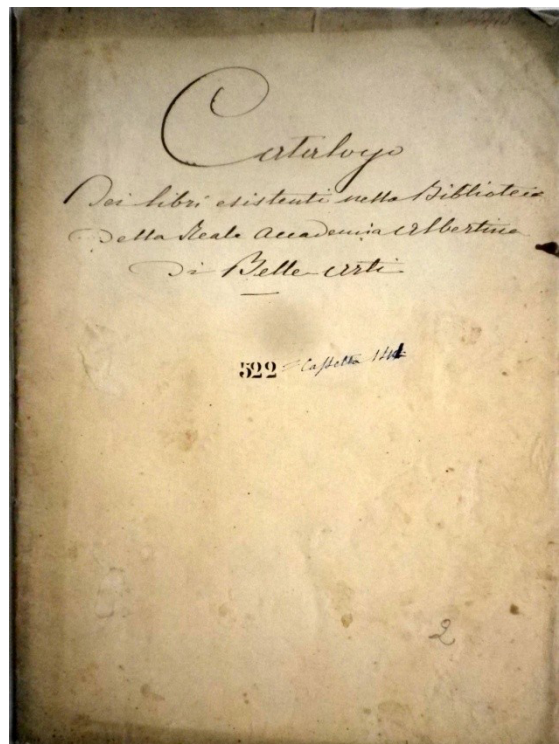 Catalogo
Dei libri esistenti nella Biblioteca
Della Reale Accademia Albertina
Di Belle Arti
522 = Cassetta
2